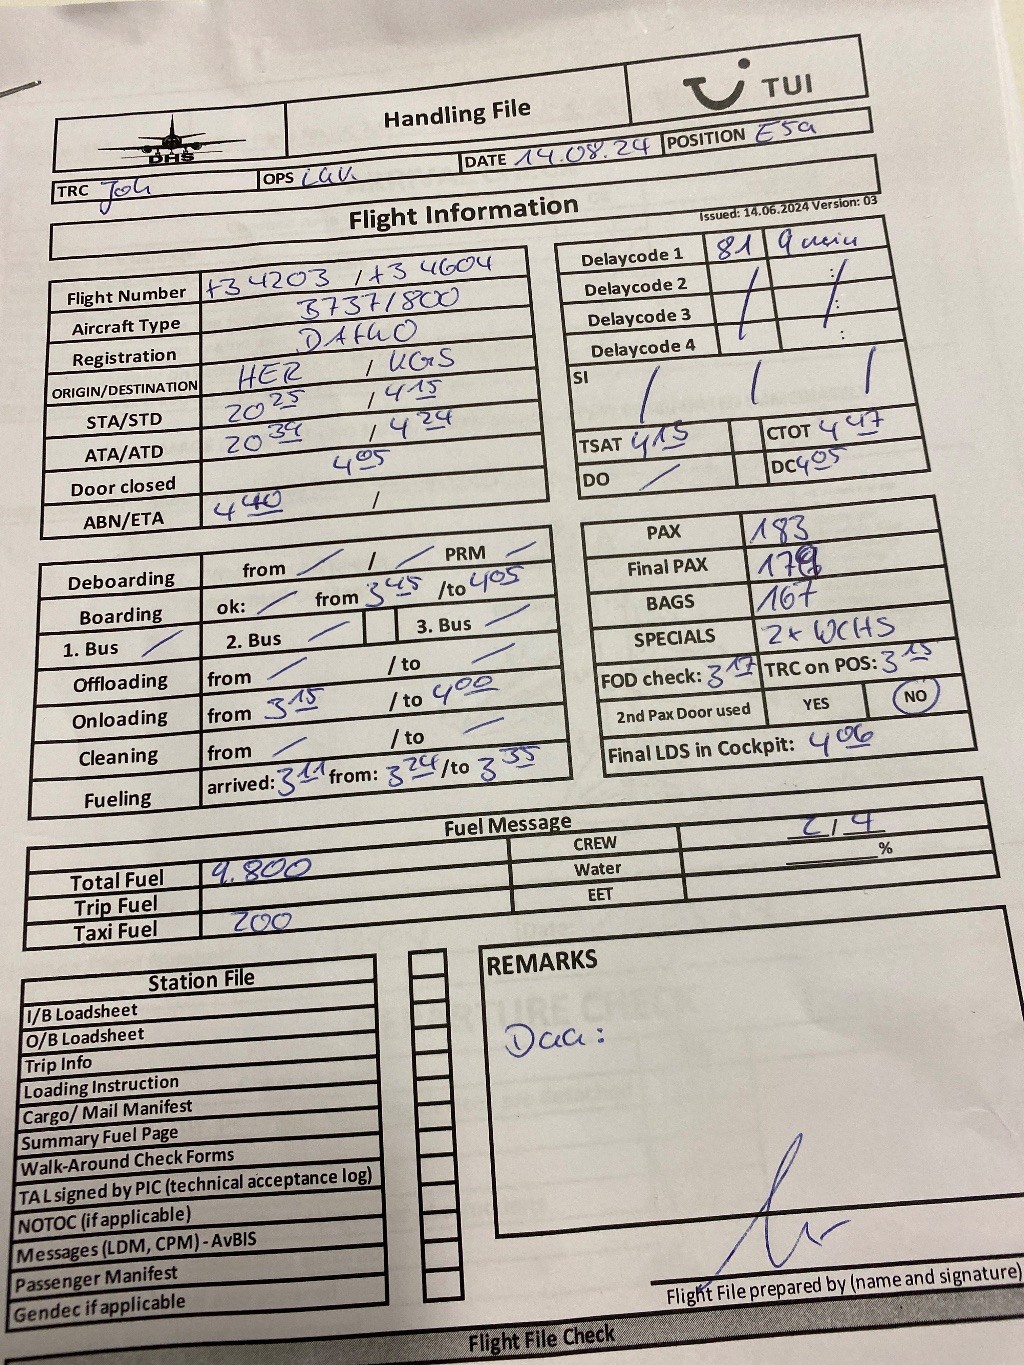 DHS Handling File TUI
TRC Joh OPS DATE 14.08.24 POSITION E5a
Flight Information
Issued: 14.06.2024 Version: 03
Flight Number X3 4203 / X3 4604
Aircraft Type B737/800
Registration
ORIGIN/DESTINATION HER / KGS
STA/STD 20 25 / 4 15
ATA/ATD 20 39 / 4 24
Door closed 4 05
ABN/ETA 4 40 /
Delaycode 1 81 9 min
Delaycode 2 / :
Delaycode 3 :
Delaycode 4 / :
SI / / /
TSAT 4 15 CTOT 4 47
DO / DC 4 05
Deboarding from / / / PRM /
Boarding ok: / from 3 45 /to 4 05
1. Bus / 2. Bus / 3. Bus /
Offloading from / / to /
Onloading from 3 15 / to 4 00
Cleaning from / / to /
Fueling arrived: 3 11 from: 3 24 /to 3 35
PAX 183
Final PAX 179
BAGS 167
SPECIALS 2x WCHS
FOD check: 3 17 TRC on POS: 3 15
2nd Pax Door used YES NO
Final LDS in Cockpit: 4 06
Fuel Message
Total Fuel 9.800 CREW 2 / 4
Trip Fuel Water %
Taxi Fuel 200 EET
Station File
I/B Loadsheet
O/B Loadsheet
Trip Info
Loading Instruction
Cargo/ Mail Manifest
Summary Fuel Page
Walk-Around Check Forms
TAL signed by PIC (technical acceptance log)
NOTOC (if applicable)
Messages (LDM, CPM) - AvBIS
Passenger Manifest
Gendec if applicable
REMARKS
Daa:
Flight File prepared by (name and signature)
Flight File Check